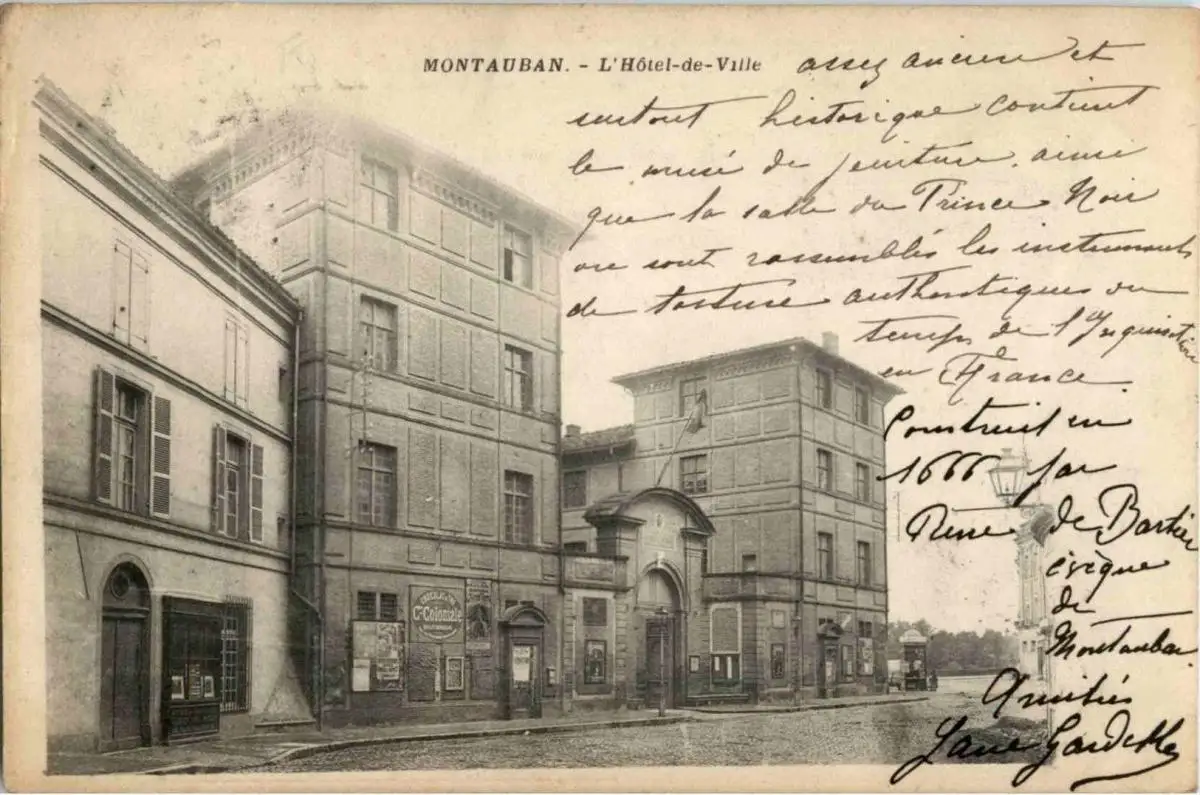 MONTAUBAN. - L'Hôtel-de-Ville
assez ancienne et
surtout historique contient
le musé de peinture ainsi
que la salle du Prince Noir
ou sont rassemblés les instruments
de torture authentiques du
temps de l'Inquisition
en France.
Construit en
1666 par
Pierre de Bertier
évèque
de
Montauban
Amitiés
Jane
CHOCOLAT
Cie Coloniale